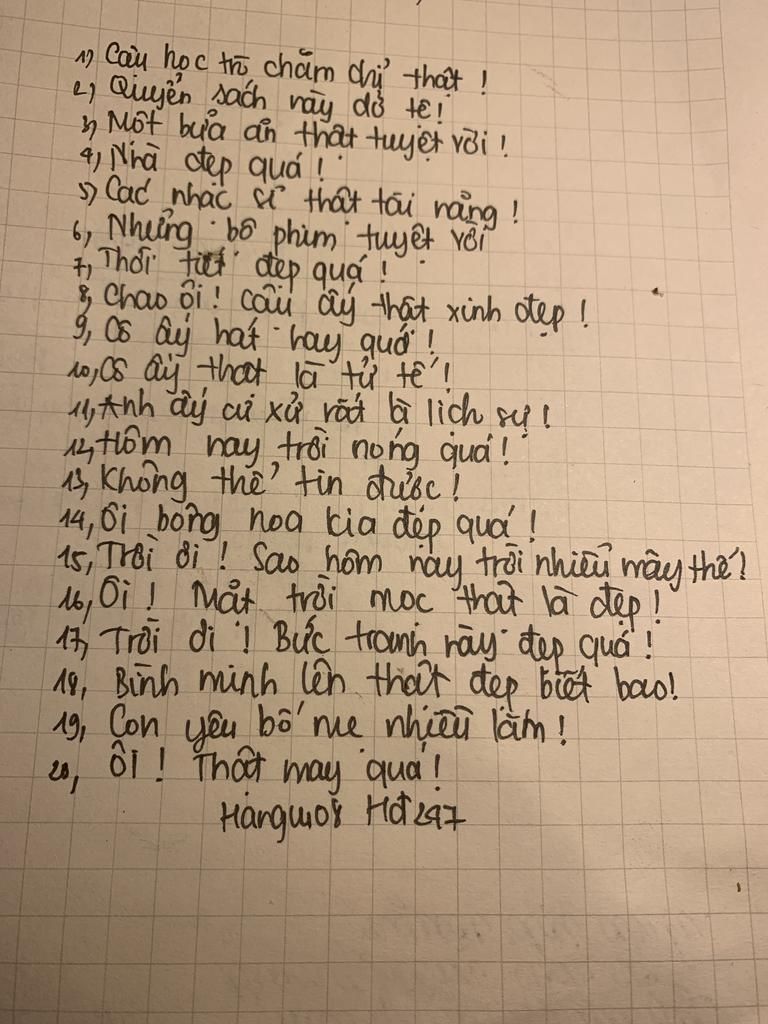 1) Cậu học trò chăm chỉ thật !
2) Quyển sách này dở tệ !
3) Một bữa ăn thật tuyệt vời !
4) Nhà đẹp quá !
5) Các nhạc sĩ thật tài năng !
6, Những bộ phim tuyệt vời
7, Thời tiết đẹp quá !
8, Chao ôi ! Cậu ấy thật xinh đẹp !
9, Cô ấy hát hay quá !
10, Cô ấy thật là tử tế !
11, Anh ấy cư xử rất là lịch sự !
12, Hôm nay trời nóng quá !
13, Không thể tin được !
14, Ôi bông hoa kia đẹp quá !
15, Trời ơi ! Sao hôm nay trời nhiều mây thế !
16, Ôi ! Mặt trời mọc thật là đẹp !
17, Trời ơi ! Bức tranh này đẹp quá !
18, Bình minh lên thật đẹp biết bao !
19, Con yêu bố mẹ nhiều lắm !
20, Ôi ! Thật may quá !